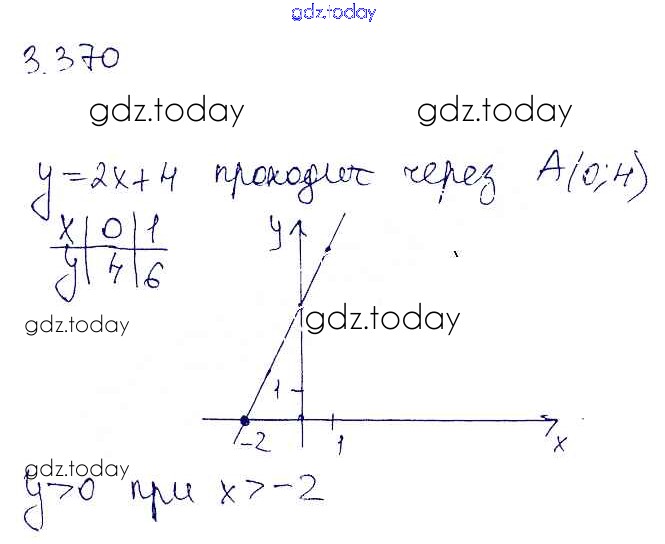 gdz.today
3.370
gdz.today gdz.today
y=2x+4 проходит через A(0;4)
x | 0 | 1
y | 4 | 6
y
gdz.today
gdz.today
1
-2 1 x
gdz.today
y>0 при x>-2